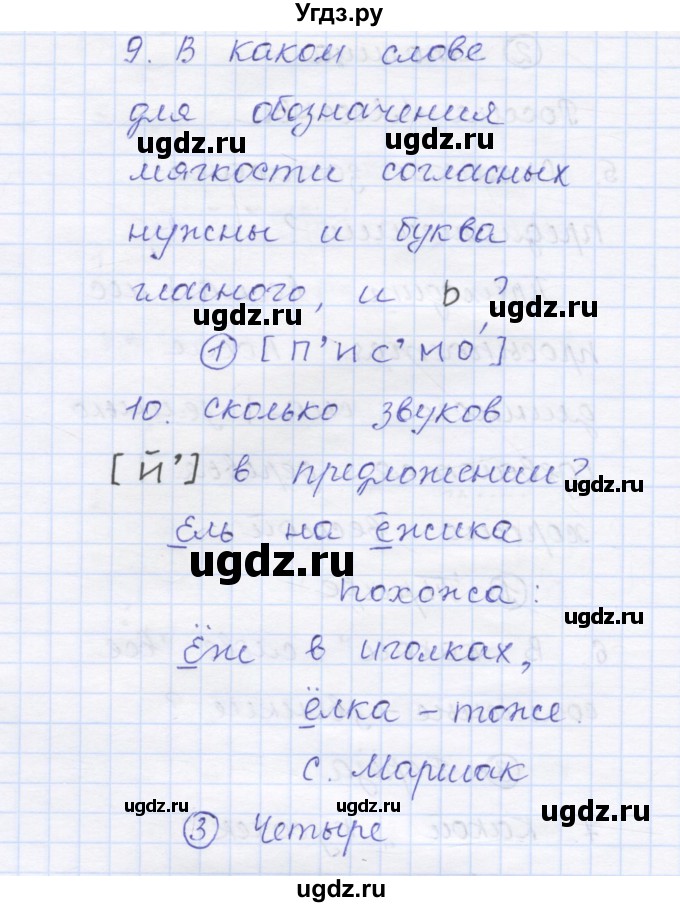 Угдз.ру
9. В каком слове
для обозначения
ugdz.ru ugdz.ru
мягкости согласных
ugdz.ru
нужны и буква
гласного, и ь?
ugdz.ru ugdz.ru
① [п’ис’мо]
10. сколько звуков
ugdz.ru ugdz.ru
[й’] в предложении?
ugdz.ru
Ель на ёжика
ugdz.ru
похожа:
ugdz.ru
Ёж в иголках,
ёлка – тоже.
ugdz.ru ugdz.ru
С. Маршак
ugdz.ru ugdz.ru ugdz.ru
③ Четыре
ugdz.ru